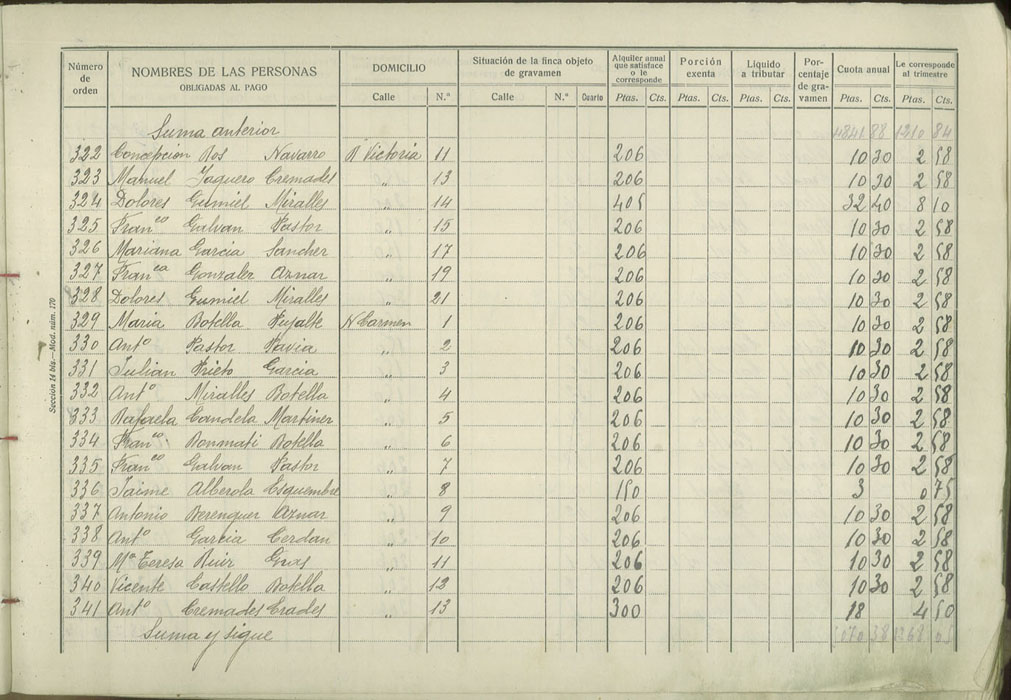 Número de orden
NOMBRES DE LAS PERSONAS
OBLIGADAS AL PAGO
DOMICILIO
Calle N.º
Situación de la finca objeto de gravamen
Calle N.º Cuarto
Alquiler anual que satisface o le corresponde
Ptas. Cts.
Porción exenta
Ptas. Cts.
Líquido a tributar
Ptas. Cts.
Porcentaje de gravamen
Cuota anual
Ptas. Cts.
Le corresponde al trimestre
Ptas. Cts.
Suma anterior 4841 88 1210 84
322 Concepcion Ros Navarro R Victoria 11 206 10 30 2 58
323 Manuel Jaquero Cremades " 13 206 10 30 2 58
324 Dolores Gumiel Miralles " 14 405 32 40 8 10
325 Franco Galvan Pastor " 15 206 10 30 2 58
326 Mariana Garcia Sancher " 17 206 10 30 2 58
327 Franca Gonzaler Aznar " 19 206 10 30 2 58
328 Dolores Gumiel Miralles " 21 206 10 30 2 58
329 Maria Botella N Carmen 1 206 10 30 2 58
330 Antº Pastor Pavia " 2 206 10 30 2 58
331 Julian Prieto Garcia " 3 206 10 30 2 58
332 Antº Miralles Botella " 4 206 10 30 2 58
333 Rafaela Candela Martiner " 5 206 10 30 2 58
334 Franco Bonmati Botella " 6 206 10 30 2 58
335 Franco Galvan Pastor " 7 206 10 30 2 58
336 Jaime Alberola Esquembre " 8 150 3 0 75
337 Antonio Berenguer Aznar " 9 206 10 30 2 58
338 Antº Garcia Cerdan " 10 206 10 30 2 58
339 Mª Teresa Ruir Gras " 11 206 10 30 2 58
340 Vicente Castello Botella " 12 206 10 30 2 58
341 Antº Cremades Crades " 13 300 18 4 50
Suma y sigue 5070 38 1268 05
Sección 14 bis.—Mod. núm. 170